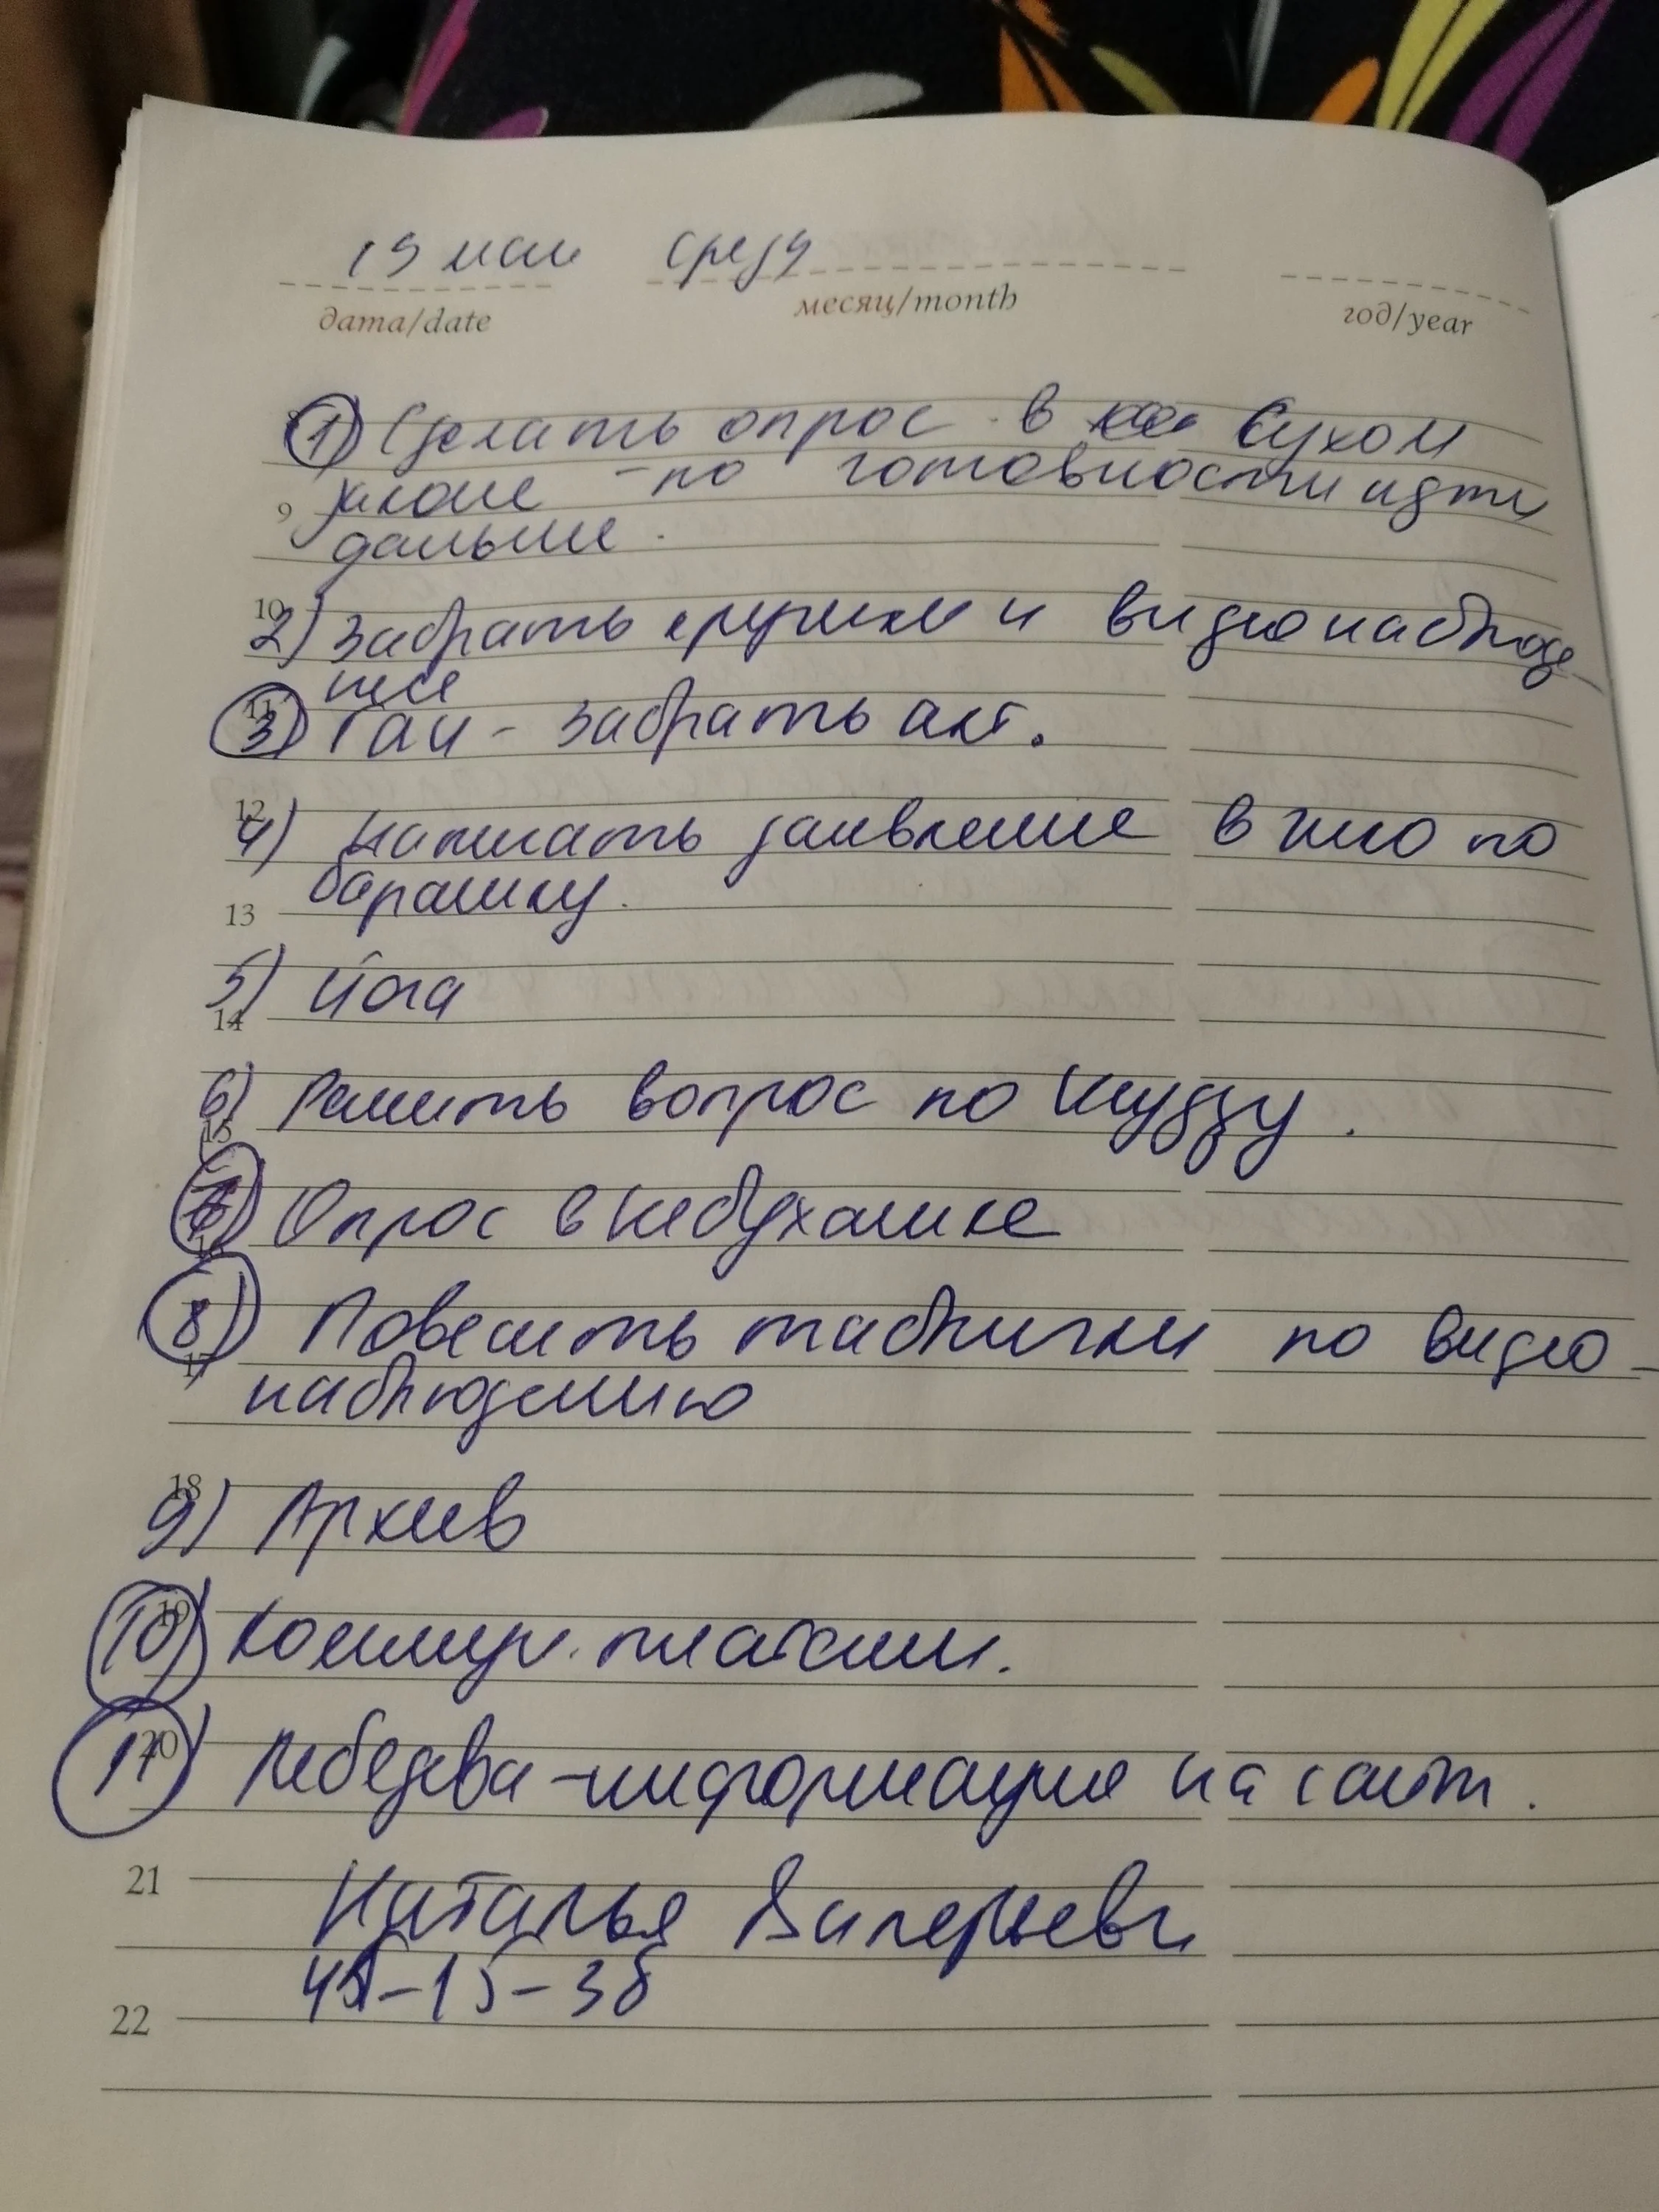 19 мая среда
дата/date месяц/month год/year
1) Сделать опрос в Сухом
9 по готовности идти
дальше.
10
2) Забрать кружки и видеонаблюде-
ние
11
3) ГАИ - забрать акт.
12
4) Написать заявление в по
13 барашку.
5) Йога
14
6) Решить вопрос по
15
7) Опрос в
8) Повесить таблички по видео-
17
наблюдению
18
9) Архив
19
10) Коммун. платежи.
20
11) Лебедева - информация на сайт.
21
Наталья Валерьевн
-15-36
22